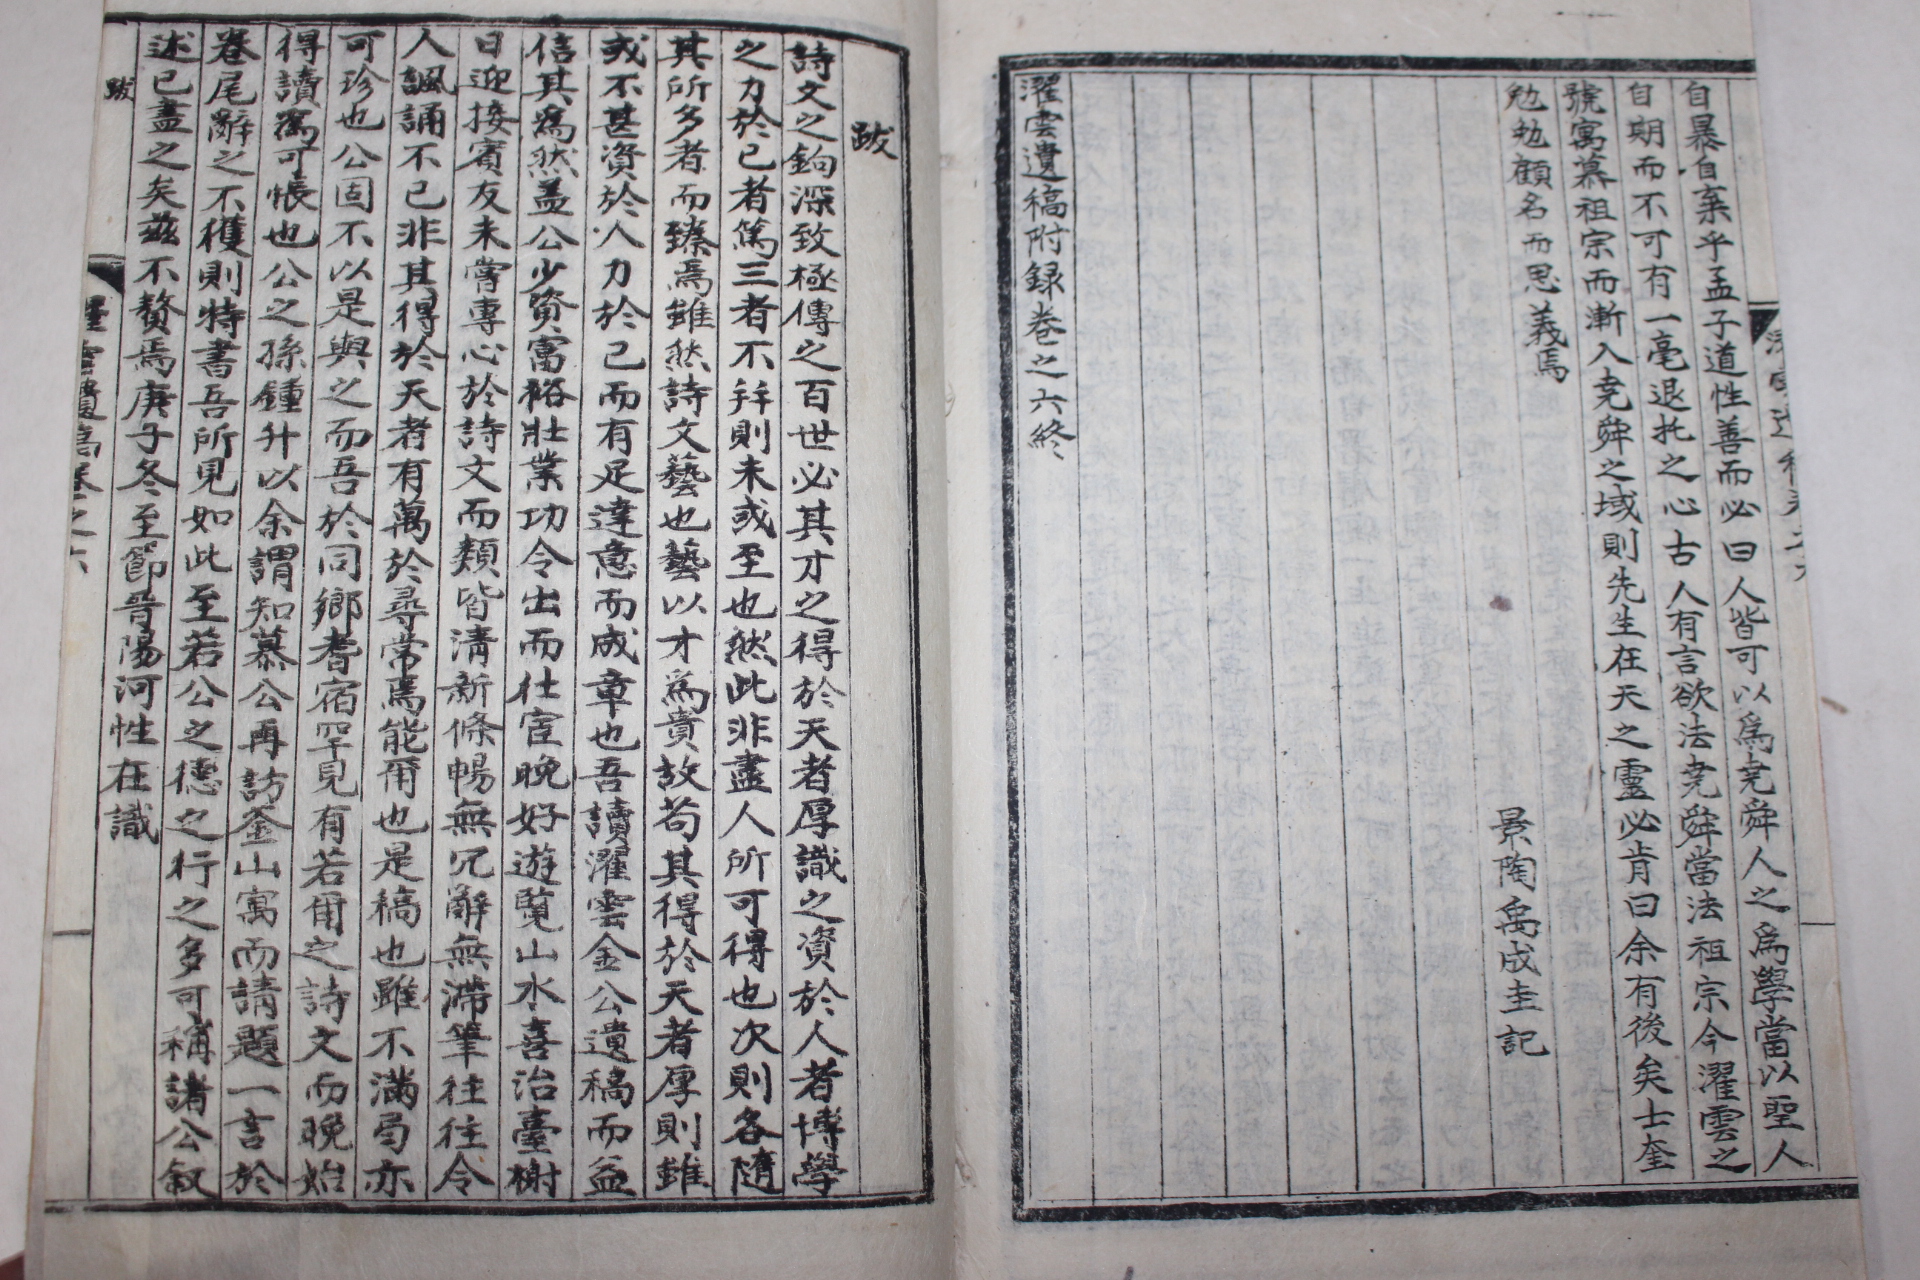 自暴自棄乎孟子道性善而必曰人皆可以爲堯舜人之爲學當以聖人
自期而不可有一毫退托之心古人有言欲法堯舜當法祖宗今濯雲之
號寓慕祖宗而漸入堯舜之域則先生在天之靈必肯曰余有後矣士奎
勉勉顧名而思義焉
景陶禹成圭記
濯雲遺稿附録卷之六終
跋
詩文之鉤深致極傳之百世必其才之得於天者厚識之資於人者博學
之力於已者篤三者不幷則未或至也然此非盡人所可得也次則各隨
其所多者而臻焉雖然詩文藝也藝以才爲貴故苟其得於天者厚則雖
或不甚資於人力於己而有足達意而成章也吾讀濯雲金公遺稿而益
信其爲然盖公少資富裕壯業功令出而仕宦晩好遊覧山水喜治臺榭
日迎接賓友未嘗專心於詩文而類皆淸新條暢無冗辭無滯筆往往令
人諷誦不已非其得於天者有萬於尋常焉能爾也是稿也雖不滿弓亦
可珍也公固不以是與之而吾於同鄉耆宿罕見有若爾之詩文而晩始
得讀爲可悵也公之孫鍾升以余謂知慕公再訪釜山寓而請題一言於
卷尾辭之不穫則特書吾所見如此至若公之德之行之多可稱諸公叙
述已盡之矣玆不贅焉庚子冬至節晉陽河性在識
跋
濯雲遺稿卷之六